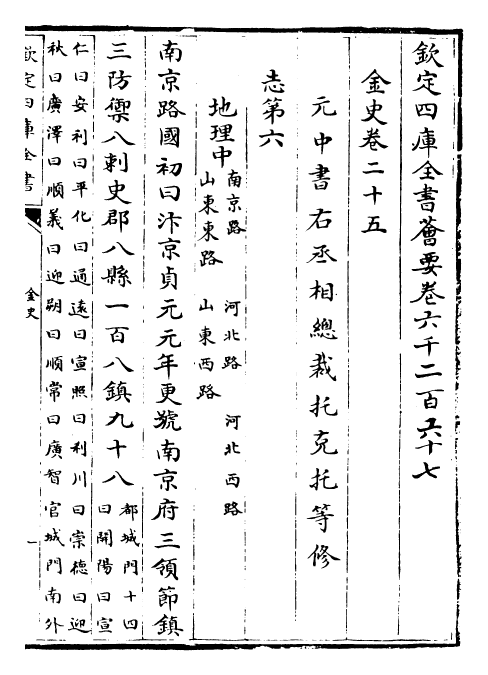 欽定四庫全書薈要卷六千二百六十七
金史卷二十五
元中書右丞相總裁托克托等修
志第六
地理中
南京路　河北路　河北西路
山東東路　山東西路
南京路國初曰汴京貞元元年更號南京府三領節鎮
三防禦八刺史郡八縣一百八鎮九十八
都城門十四
曰開陽曰宣
仁曰安利曰平化曰通遠曰宣照曰利川曰崇德曰迎
秋曰廣澤曰順義曰迎朔曰順常曰廣智宫城門南外
欽定四庫全書
金史
一